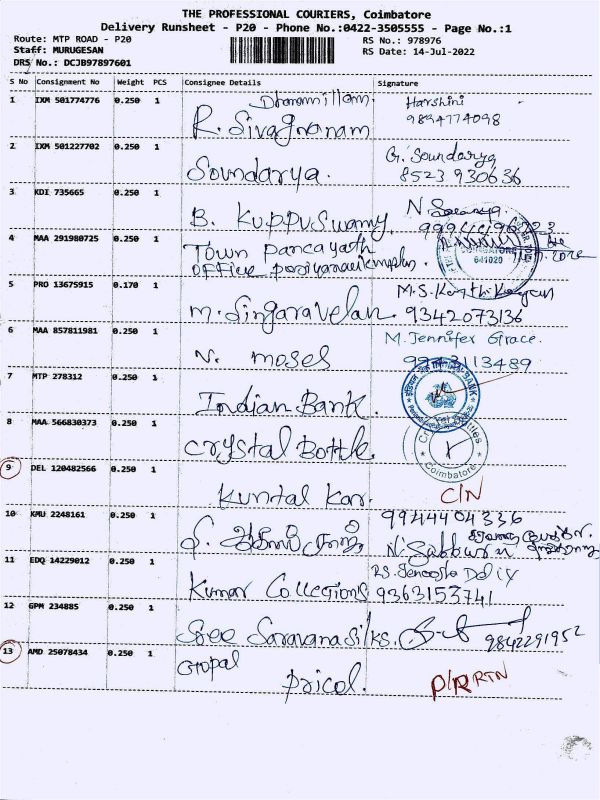 THE PROFESSIONAL COURIERS, Coimbatore
Delivery Runsheet - P20 - Phone No.:0422-3505555 - Page No.:1
Route: MTP ROAD - P20
RS No.: 978976
Staff: MURUGESAN
RS Date: 14-Jul-2022
DRS No.: DCJB97897601
S No Consignment No Weight PCS Consignee Details Signature
1 IXM 501774776 0.250 1 R. Sivagnanam Harshini
9894774098
2 IXM 501227702 0.250 1 Soundarya. G. Soundarya
8523 930636
3 KDI 735665 0.250 1 B. Kuppuswamy N
4 MAA 291980725 0.250 1 Town Pancayath
office
641020
5 PRO 13675915 0.170 1 M. Singaravelan M.S.
9342073136
6 MAA 857811981 0.250 1 N. moses M. Jennifer Grace.
9943113489
7 MTP 278312 0.250 1 Indian Bank
8 MAA 566830373 0.250 1 Crystal Bottle.
Coimbatore
9 DEL 120482566 0.250 1 Kuntal Kar. C/N
10 KMU 2248161 0.250 1 9944404336
11 EDQ 14229012 0.250 1 Kumar Collections 9363153741
12 GPM 234885 0.250 1 Sree Saravana silks. 9842291952
13 AMD 25078434 0.250 1 Gopal
Pricol. P/R RTN